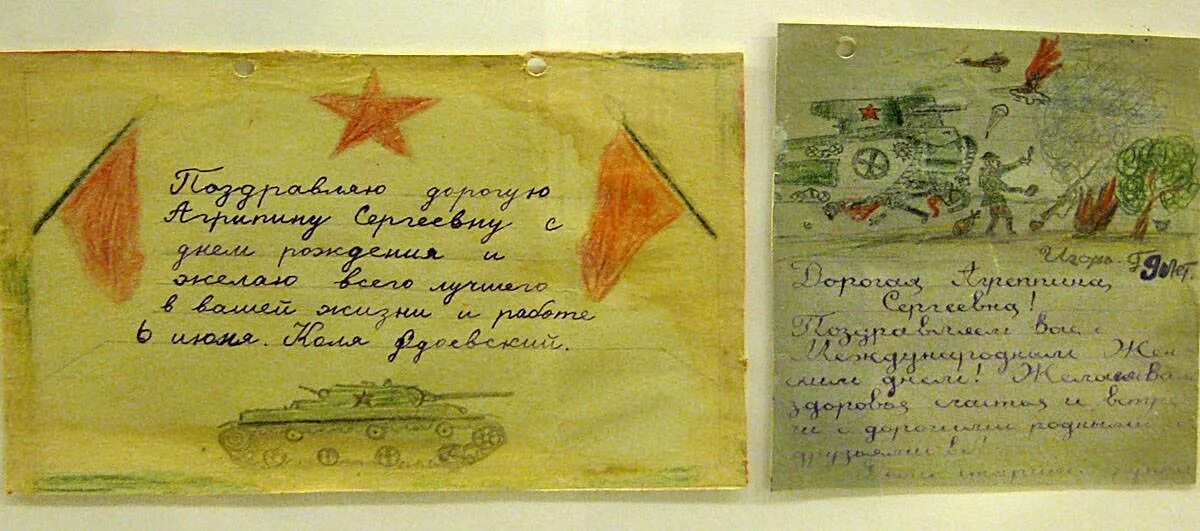 Поздравляю дорогую
Агрипину Сергеевну с
днем рождения и
желаю всего лучшего
в вашей жизни и работе
6 июня. Коля Одоевский.
Игорь Г 9 лет.
Дорогая Агреппина
Сергеевна!
Поздравляем Вас с
Международным Жен
ским днем! Желаем Вам
здоровья счастья и встре
чи с дорогими родными и
друзьями
старшая группа